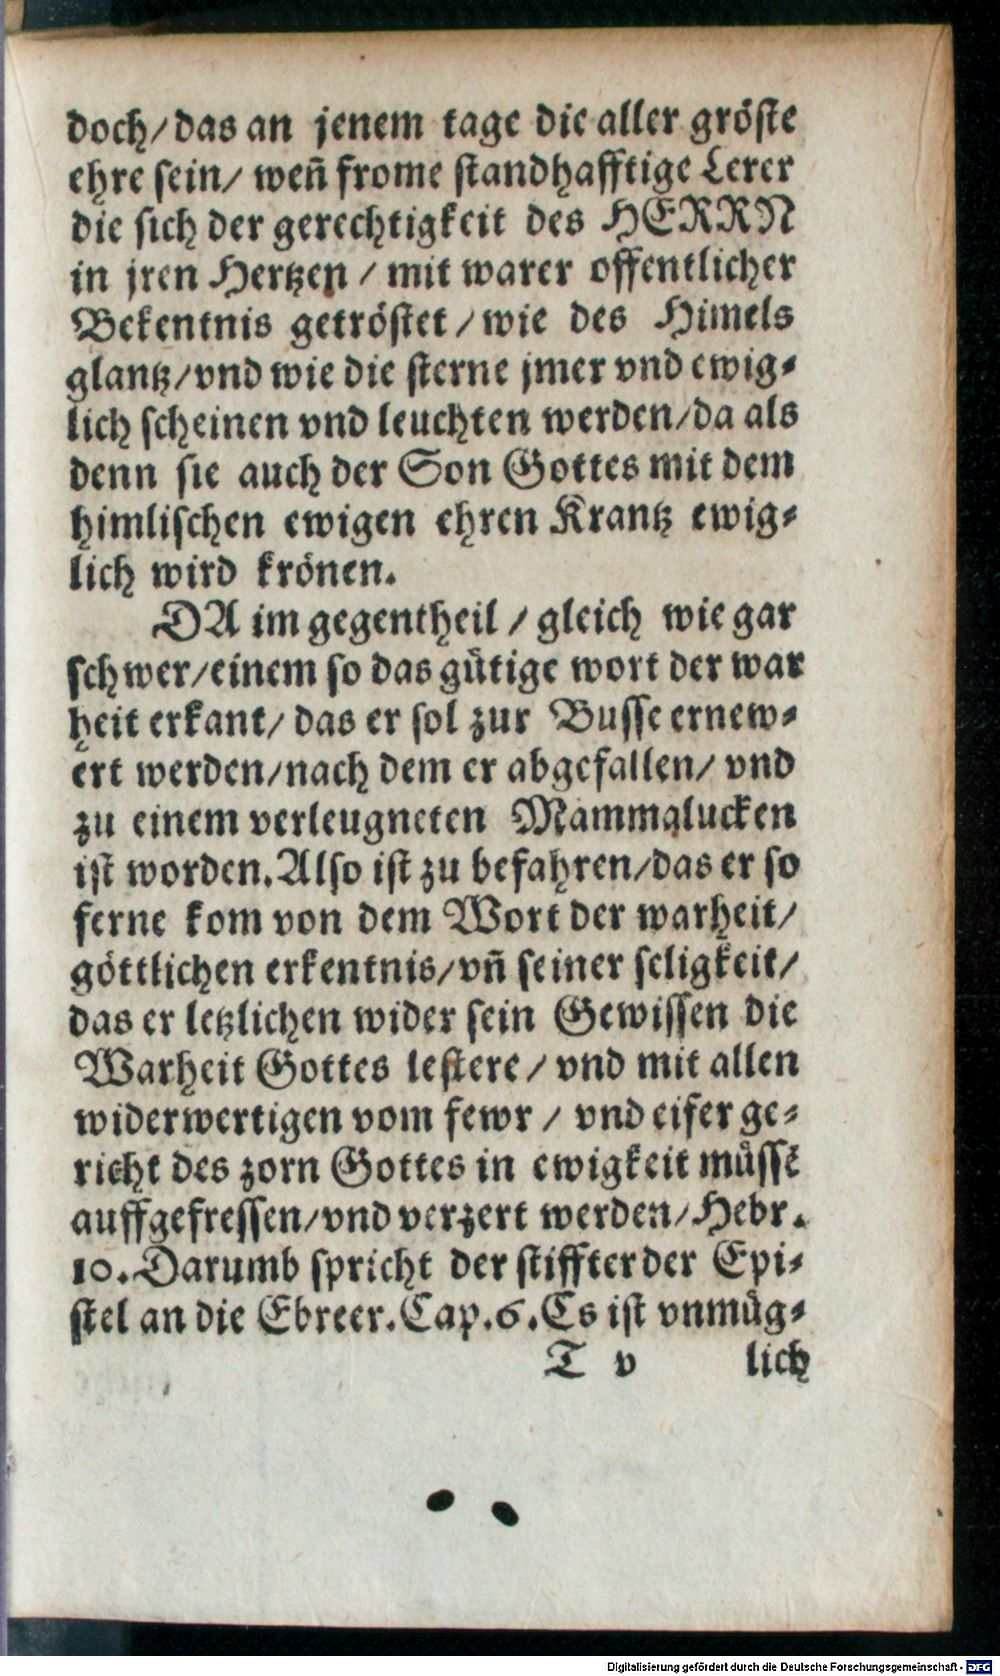 doch/das an jenem tage die aller gröste
ehre sein/ weñ frome standhafftige Lerer
die sich der gerechtigkeit des HERRN
in jren Hertzen / mit warer offentlicher
Bekentnis getröstet / wie des Himels
glantz/vnd wie die sterne jmer vnd ewig-
lich scheinen vnd leuchten werden/da als
denn sie auch der Son Gottes mit dem
himlischen ewigen ehren Krantz ewig-
lich wird krönen.
DA im gegentheil / gleich wie gar
schwer/einem so das gütige wort der war
heit erkant/ das er sol zur Busse ernew-
ert werden/nach dem er abgefallen/ vnd
zu einem verleugneten Mammalucken
ist worden. Also ist zu befahren/das er so
ferne kom von dem Wort der warheit/
göttlichen erkentnis/vñ seiner seligkeit/
das er letzlichen wider sein Gewissen die
Warheit Gottes lestere / vnd mit allen
widerwertigen vom fewr / vnd eifer ge-
richt des zorn Gottes in ewigkeit müssē
auffgefressen/vnd verzert werden/Hebr.
10. Darumb spricht der stiffter der Epi-
stel an die Ebreer. Cap. 6. Es ist vnmüg-
T v lich
Digitalisierung gefördert durch die Deutsche Forschungsgemeinschaft - DFG